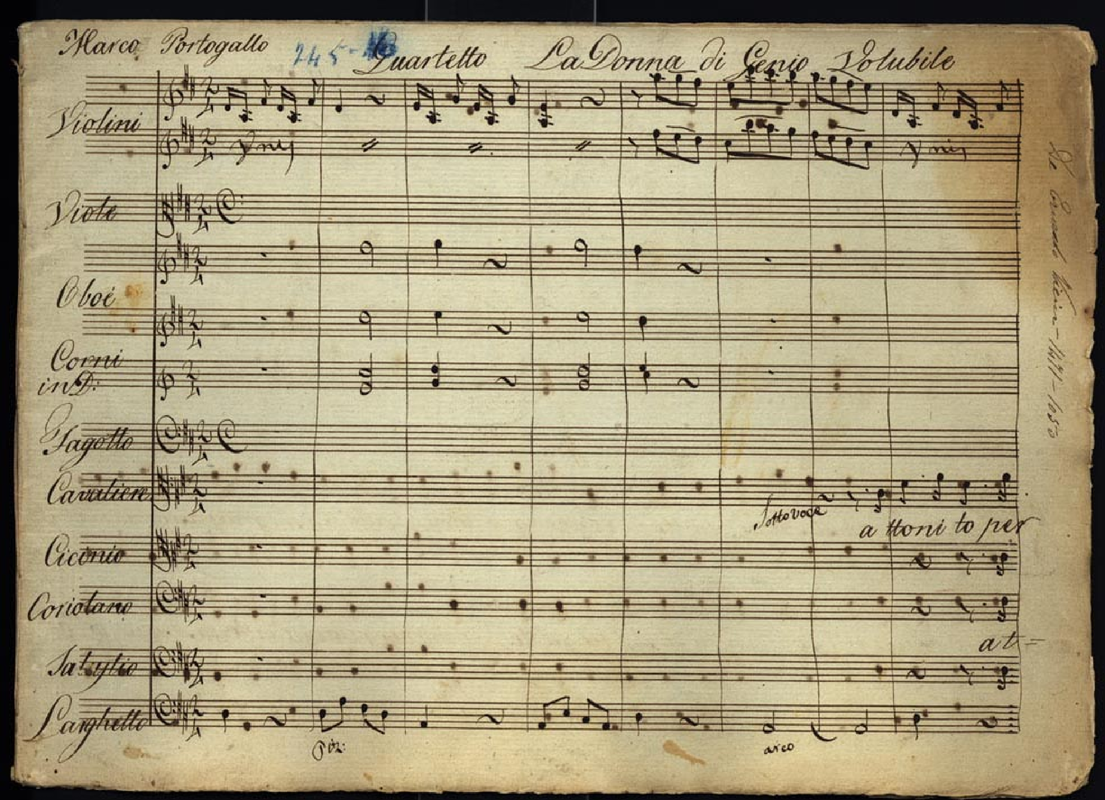 Marco Portogallo 245- Quartetto La Donna di Genio Volubile
Violini
Vnis
Vnis
Viole
Oboè
Corni
in D:
Fagotto
Cavaliere
Sottovoce
a ttoni to per
Ciconio
Coriolano
at=
Larghetto
Piz:
arco